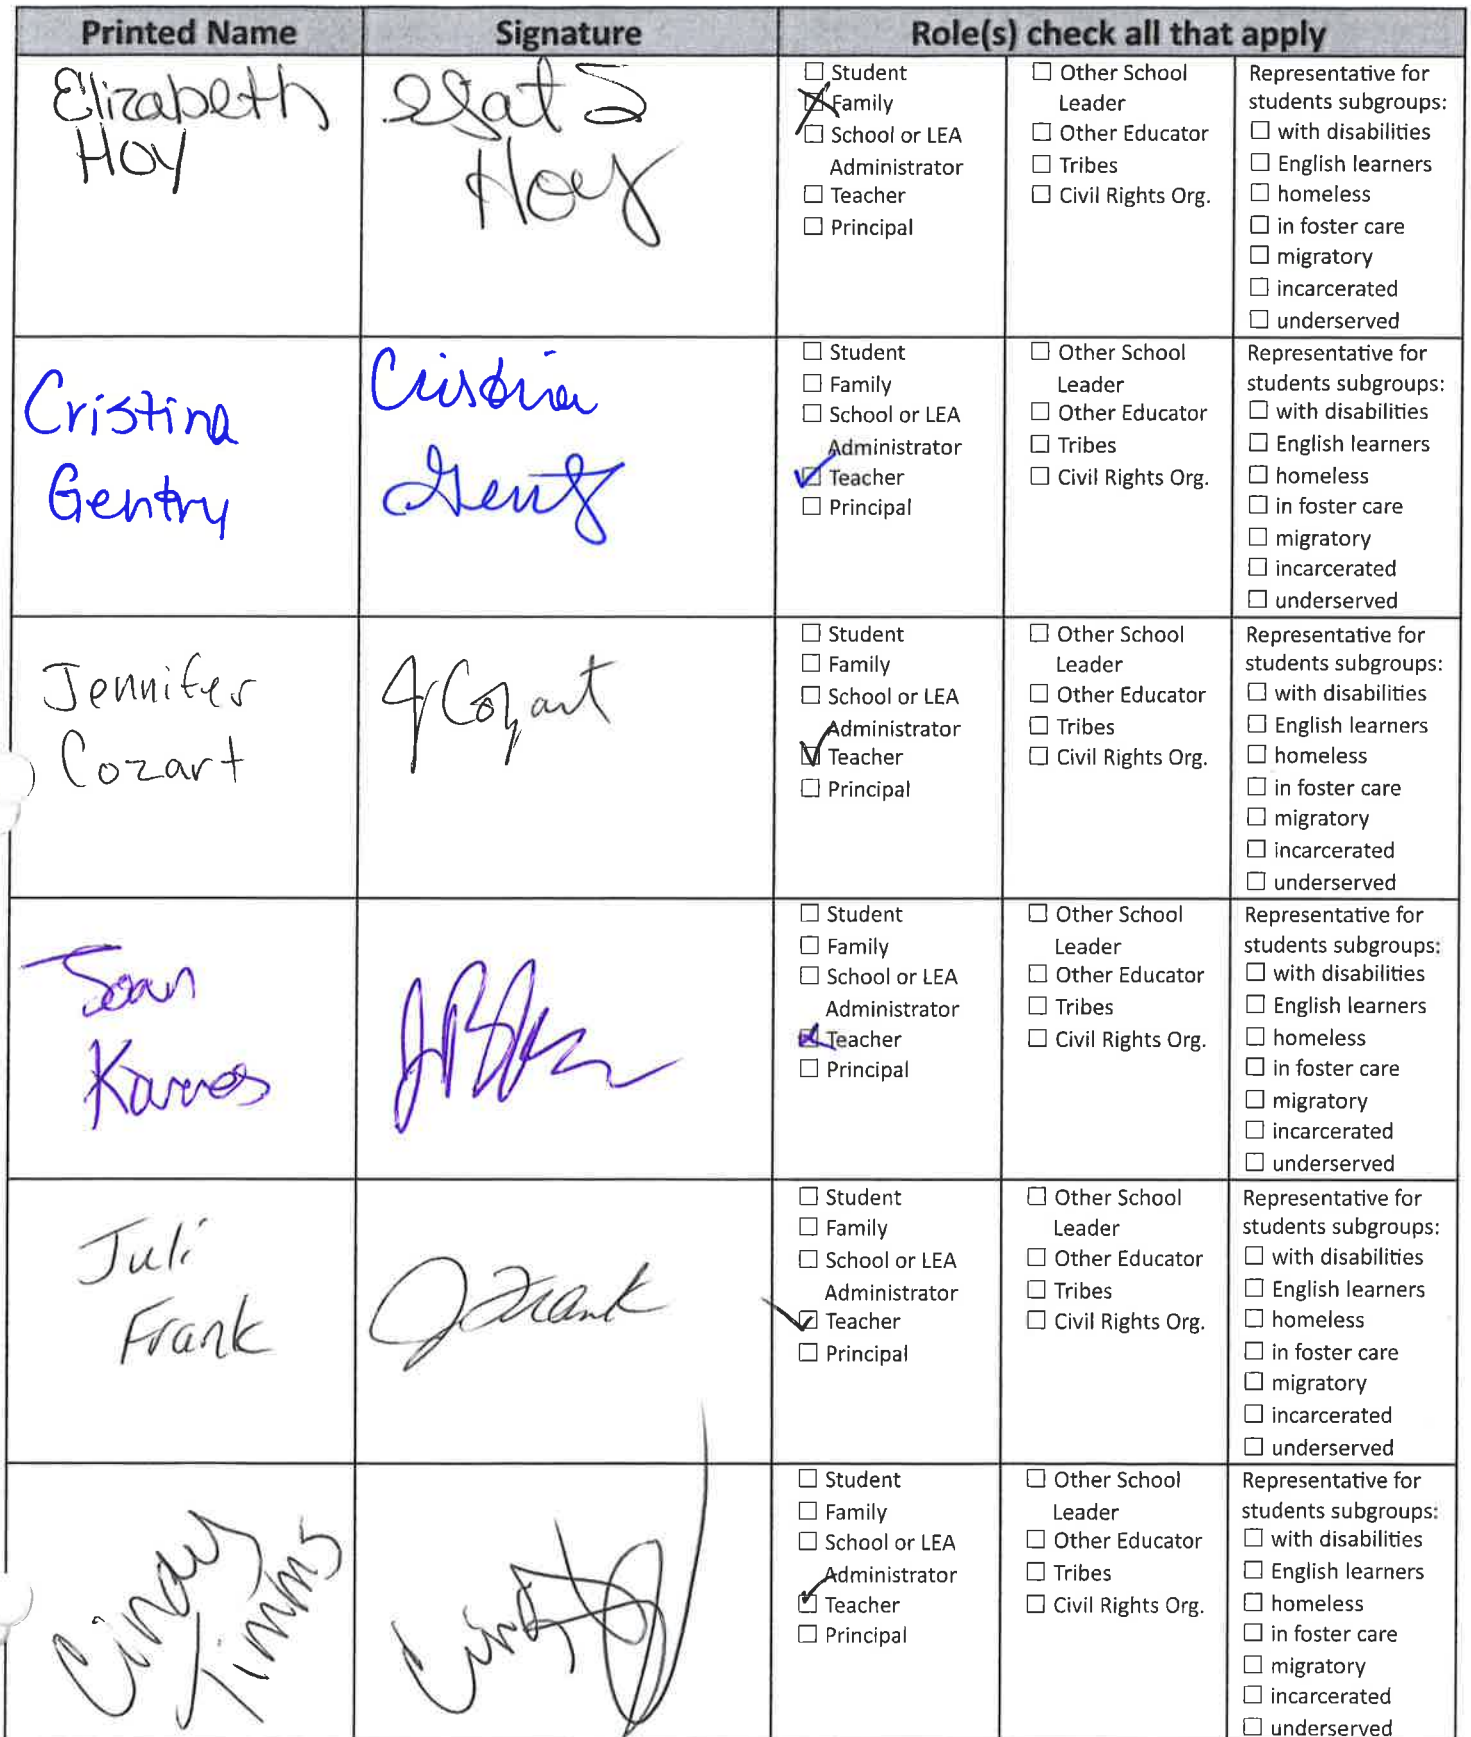 Printed Name Signature Role(s) check all that apply
Elizabeth
Hoy
Hoy
☐ Student
☒ Family
☐ School or LEA
Administrator
☐ Teacher
☐ Principal
☐ Other School
Leader
☐ Other Educator
☐ Tribes
☐ Civil Rights Org.
Representative for
students subgroups:
☐ with disabilities
☐ English learners
☐ homeless
☐ in foster care
☐ migratory
☐ incarcerated
☐ underserved
Cristina
Gentry
Cristina
Gentry
☐ Student
☐ Family
☐ School or LEA
Administrator
☑ Teacher
☐ Principal
☐ Other School
Leader
☐ Other Educator
☐ Tribes
☐ Civil Rights Org.
Representative for
students subgroups:
☐ with disabilities
☐ English learners
☐ homeless
☐ in foster care
☐ migratory
☐ incarcerated
☐ underserved
Jennifer
Cozart
J Cozart
☐ Student
☐ Family
☐ School or LEA
Administrator
☑ Teacher
☐ Principal
☐ Other School
Leader
☐ Other Educator
☐ Tribes
☐ Civil Rights Org.
Representative for
students subgroups:
☐ with disabilities
☐ English learners
☐ homeless
☐ in foster care
☐ migratory
☐ incarcerated
☐ underserved
Joan
☐ Student
☐ Family
☐ School or LEA
Administrator
☒ Teacher
☐ Principal
☐ Other School
Leader
☐ Other Educator
☐ Tribes
☐ Civil Rights Org.
Representative for
students subgroups:
☐ with disabilities
☐ English learners
☐ homeless
☐ in foster care
☐ migratory
☐ incarcerated
☐ underserved
Juli
Frank
J Frank
☐ Student
☐ Family
☐ School or LEA
Administrator
☑ Teacher
☐ Principal
☐ Other School
Leader
☐ Other Educator
☐ Tribes
☐ Civil Rights Org.
Representative for
students subgroups:
☐ with disabilities
☐ English learners
☐ homeless
☐ in foster care
☐ migratory
☐ incarcerated
☐ underserved
Cindy
Timms
☐ Student
☐ Family
☐ School or LEA
Administrator
☑ Teacher
☐ Principal
☐ Other School
Leader
☐ Other Educator
☐ Tribes
☐ Civil Rights Org.
Representative for
students subgroups:
☐ with disabilities
☐ English learners
☐ homeless
☐ in foster care
☐ migratory
☐ incarcerated
☐ underserved